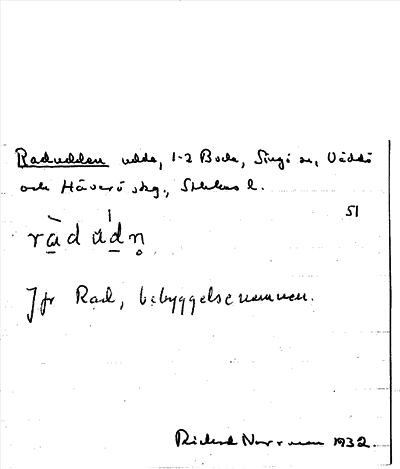 Radudden udde, 1-2 Boda, Singö sn, Väddö
och Häverö skg, Sthlms l.
51
ràd údn̥
Jfr Rad, bebyggelsenamnen.
Richard Norrman 1932.